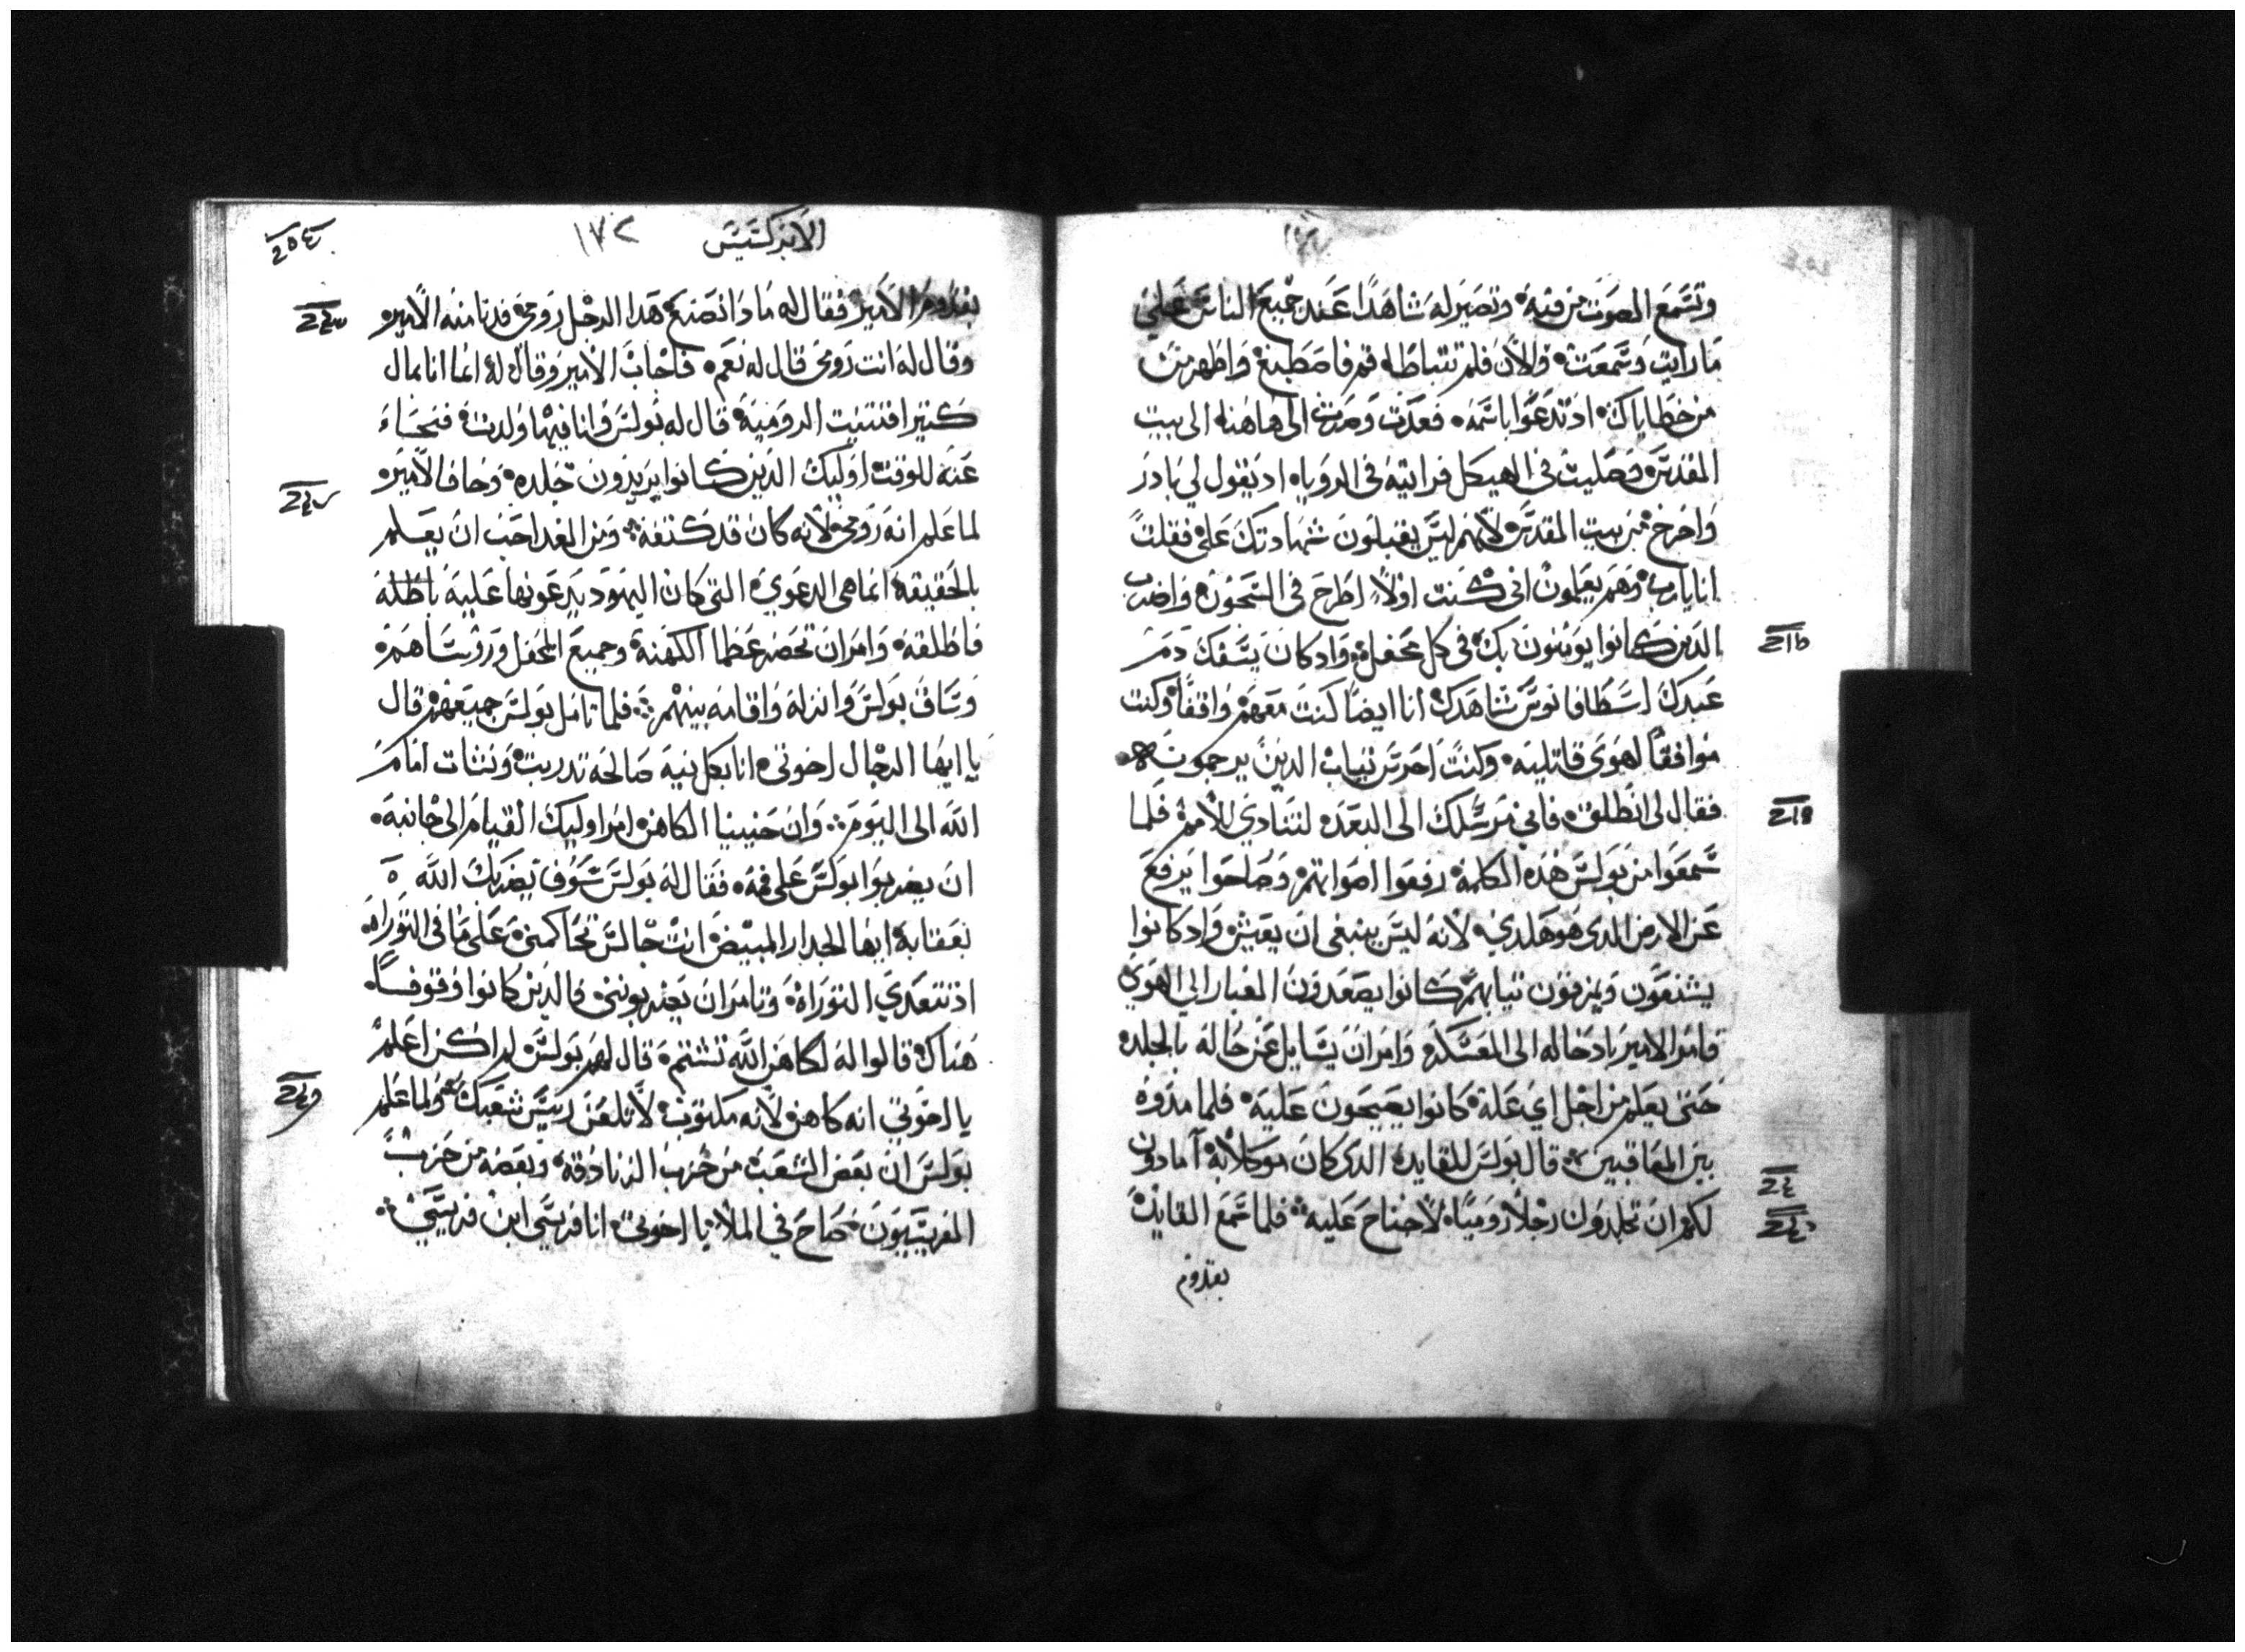 وتسمع الصوت من فيه وتصير له شاهدًا عند جميع الناس علي
ما رايت وسمعت والان فلم تتباطا قم فاصطبغ واطهر من
من خطاياك اذ تدعوا باسمه فعدت وصرت الى هاهنا الى بيت
المقدس وصليت في الهيكل فرايته في الرويا اذ يقول لي بادر
واخرج من بيت المقدس لانهم ليس يقبلون شهادتك علي فقلت
انا يارب وهم يعلمون اني كنت اولاً اطرح في السجون واضرب
الذين كانوا يومنون بك في كل محفل واذ كان يسفك دم
عبدك اسطافانوس شاهدك انا ايضاً كنت معهم واقفاً وكنت
موافقاً لهوى قاتليه وكنت احرس ثياب الذين يرجمونه
فقال لى انطلق فانى مرسلك الى البعد لتنادي للامم فلما
سمعوا من بولس هذه الكلمة رفعوا اصواتهم وصاحوا يرفع
عن الارض الدى هو هكدى لانه ليس ينبغى ان يعيش واد كانوا
يشنعون ويمزقون تيابهم كانوا يصعدون الغبار الي الهوي
فامر الامير بادخاله الى المعسكر وامر ان يسايل عن حاله بالجلد
حتى يعلم من اجل اي علة كانوا يصيحون عليه فلما مدوه
بين المعاقبين قال بولس للقايد الدى كان موكلا به آمادون
لكم ان تجلدون رجلاً روميًا لاجناح عليه فلما سمع القايد
بقدوم
الابركسيس ١٧٢
بقدوم الامير فقال له مادا تصنع هدا الرجل رومى فدنا منه الامير
وقال له انت رومى قال له نعم فاجاب الامير وقال له انما انا بمال
كتير اقتنيت الرومية قال له بولس وانا فيها ولدت فتحاء
عنه للوقت اوليك الدين كانوا يريدون جلده وخاف الامير
لما علم انه رومى لانه كان قد كتفه ومن الغد احب ان يعلم
بالحقيقة انما هى الدعوي التى كان اليهود يدعونها عليه باطلة
فاطلقه وامر ان تحضر عظما الكهنة وجميع المحفل وروساهم
وساق بولس وانزله واقامه بينهم فلما تامل بولس جميعهم قال
يا ايها الرجال اخوتى انا بكل نية صالحة تدربت وتنشات امام
الله الى اليوم وان حنينيا الكاهن امر اوليك القيام الى جانبه
ان يضربوا بولس على فمه فقال له بولس سوف يضربك الله
بعقابه ايها الجدار المبيض انت جالس تحاكمنى على ما فى التوراة
اذ تتعدي التوراة وتامر ان يضربونى فالدين كانوا وقوفاً
هناك قالوا له لكاهن الله تشتم قال لهم بولس لم اكن اعلم
يا اخوتي انه كاهن لانه مكتوب لا تلعن رييس شعبك ولما علم
بولس ان بعض الشعب من حزب الزنادقة وبعضه من حزب
الفريسيون صاح في الملا يا اخوتى انا فريسى ابن فريسى